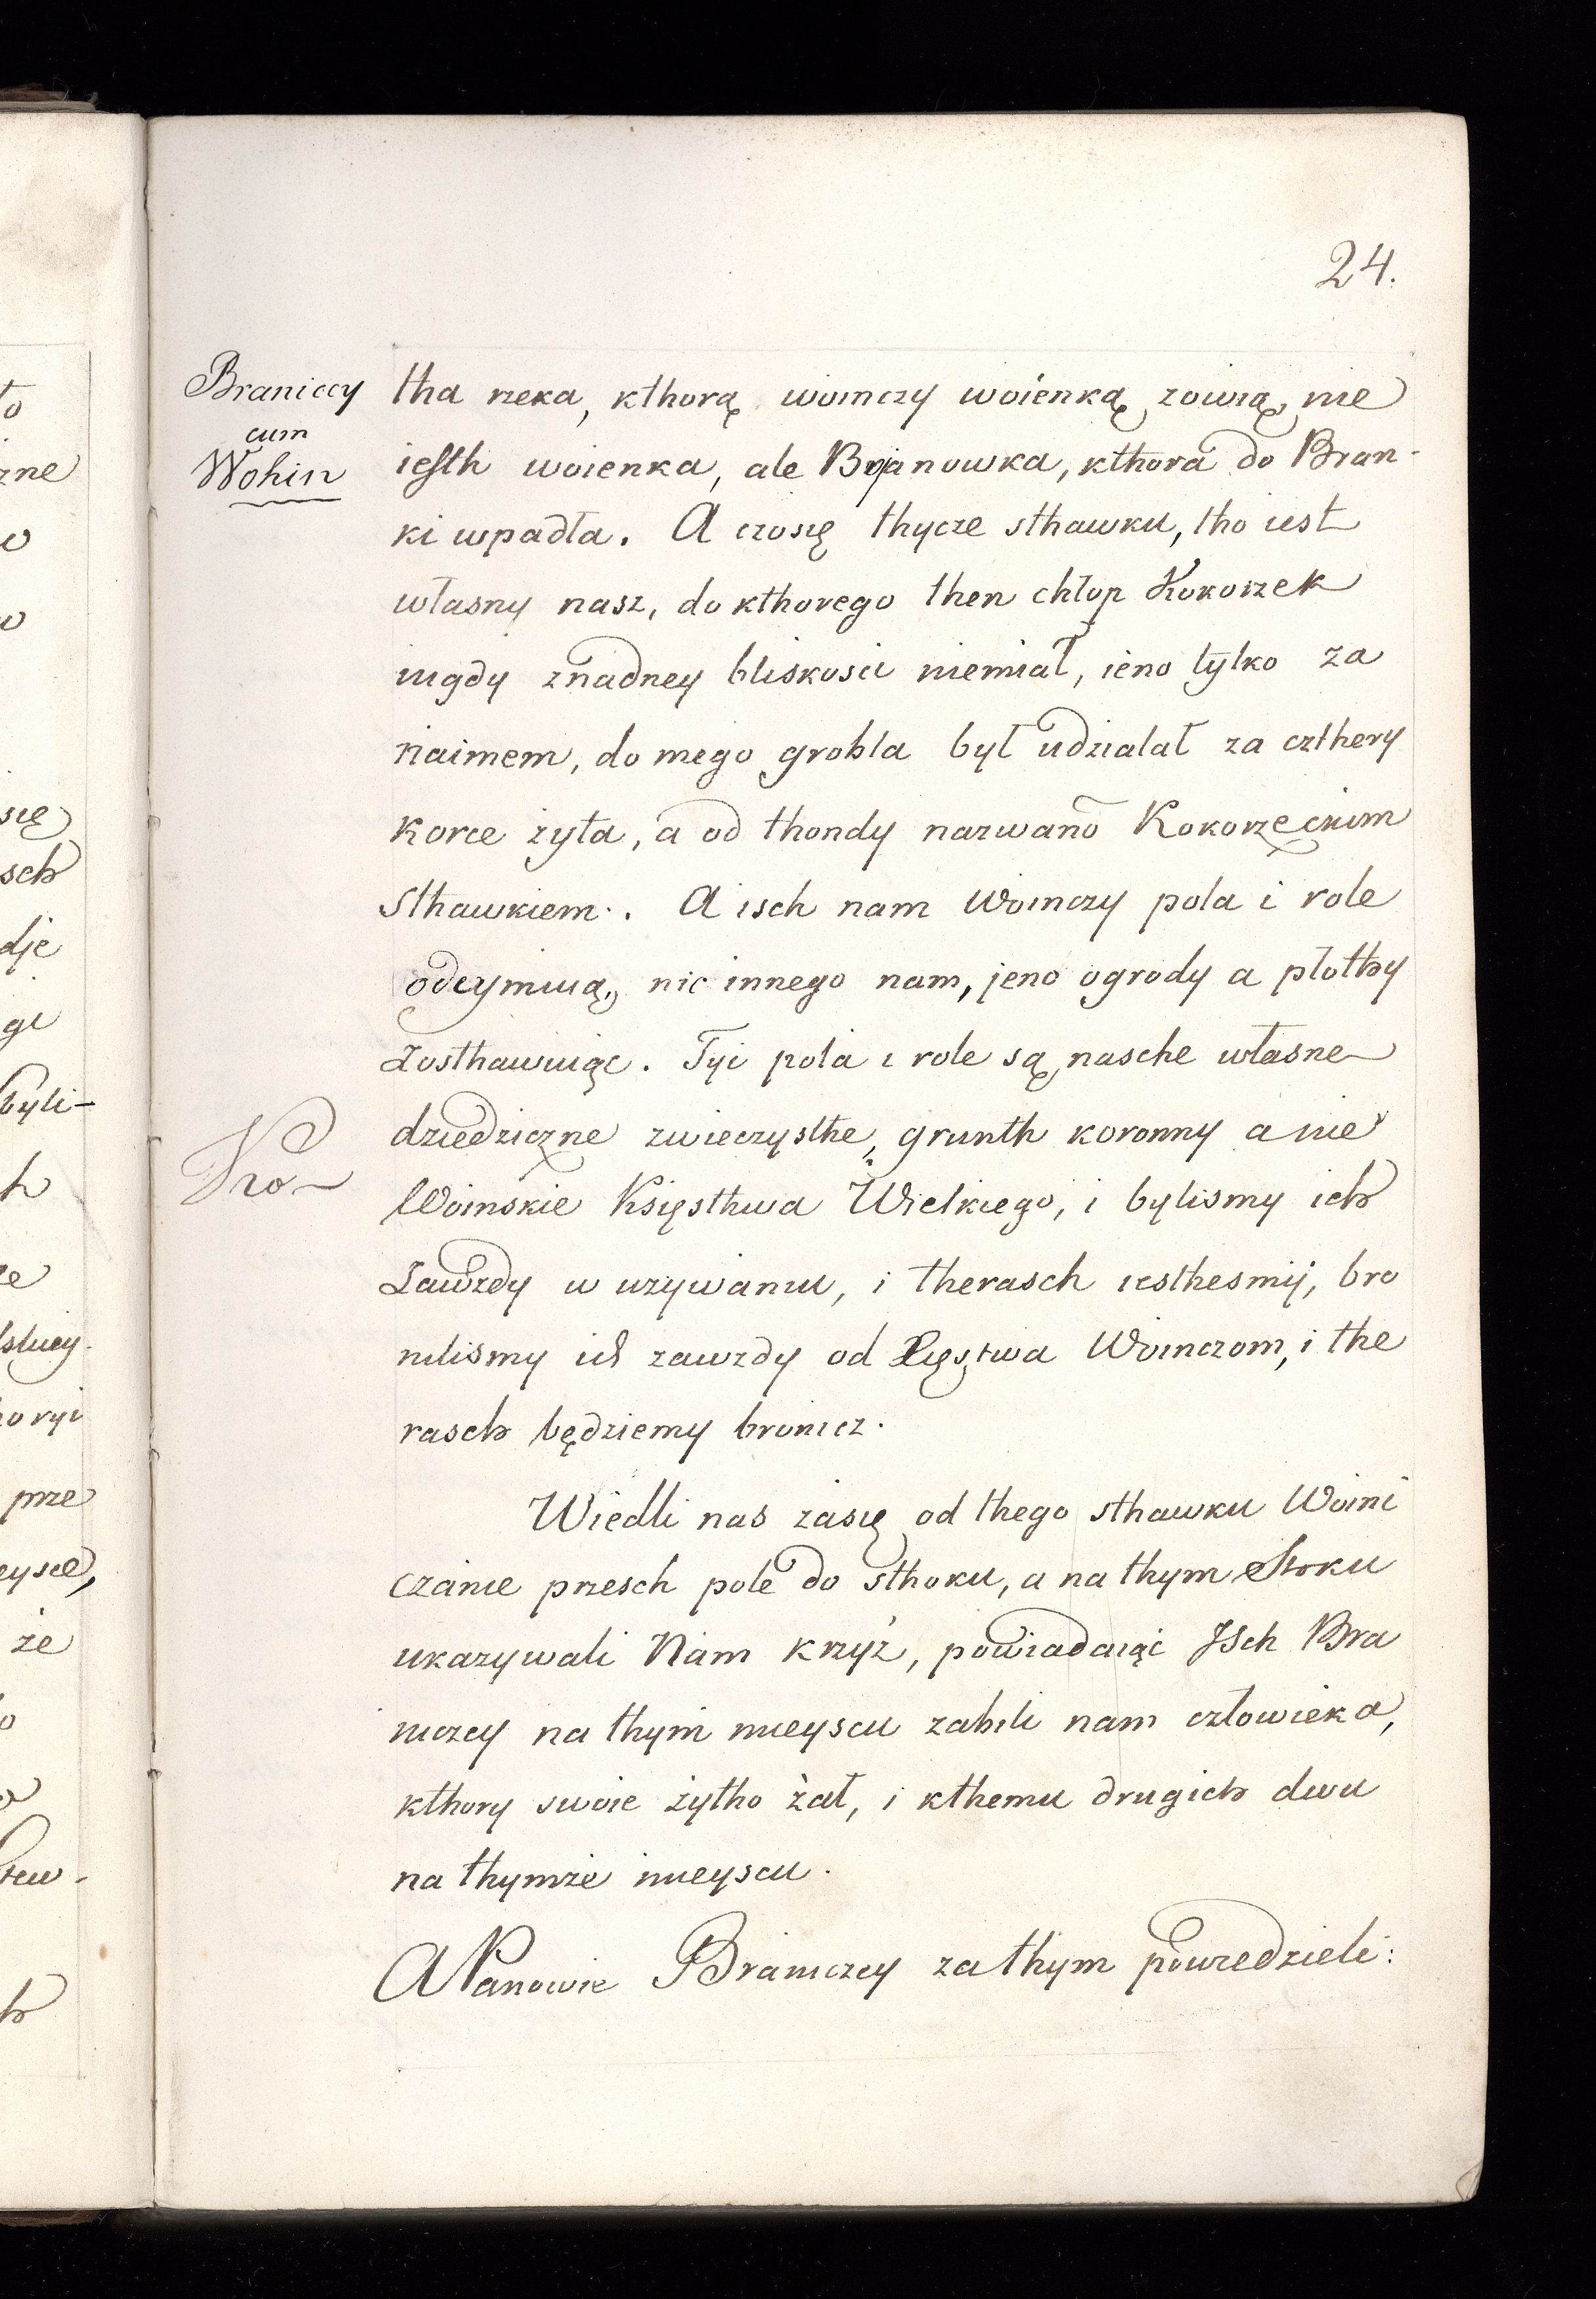 24.
Braniccy
cum
Wohin
tha rzeka, kthorą woinczy woienką zowią, nie
iesth woienka, ale Bojanowka, kthora do Bran-
ki wpadła. A czosię thycze sthawku, tho iest
własny nasz, do kthorego then chłop Kokorzek
nigdy znadney bliskosci niemiał, ieno tylko za
naimem, do mego grobla był udzialał za czthery
korce zyta, a od thondy nazwano Kokorzeckim
sthawkiem. A isch nam Woinczy pola i role
odeymuią, nic innego nam, jeno ogrody a płothy
zosthawuiąc. Tyi pola i role są nasche własne
dziedziczne zwieczysthe, grunth koronny a nie
Woinskie Księsthwa Wielkiego, i bylismy ich
zawzdy w uzywaniu, i therasch iesthesmy, bro
nilismy ich zawzdy od Woinczom, i the
rasch będziemy bronicz.
Wiedli nas zasię od thego sthawku Woini
czanie przesch pole do sthoku, a na thym Stoku
ukazywali Nam krzyż, powiadaiąc Isch Bra
niczcy na thym mieyscu zabili nam człowieka,
kthory swoie żytho żał, i kthemu drugich dwu
na thymże mieyscu.
A Panowie Braniczcy za thym powiedzieli: